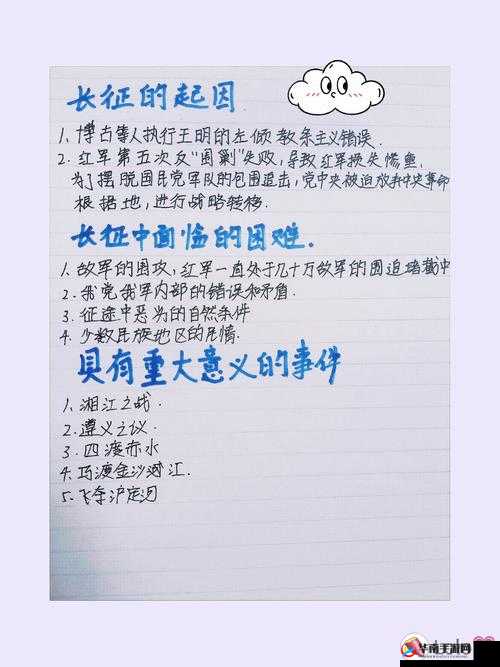 长征的起因
1. 博古等人执行王明的左倾教条主义错误.
2. 红军第五次反"围剿"失败,导致红军损失惨重.
为了摆脱国民党军队的包围追击,党中央被迫放弃中央革命
根据地,进行战略转移.
长征中面临的困难.
1. 敌军的围攻,红军一直处于几十万敌军的围追堵截中
2. 我党我军内部的错误和矛盾.
3. 征途中恶劣的自然条件
4. 少数民族地区的民情.
具有重大意义的事件
1. 湘江之战.
2. 遵义之议.
3. 四渡赤水
4. 巧渡金沙江.
5. 飞夺泸定河
华南手游网